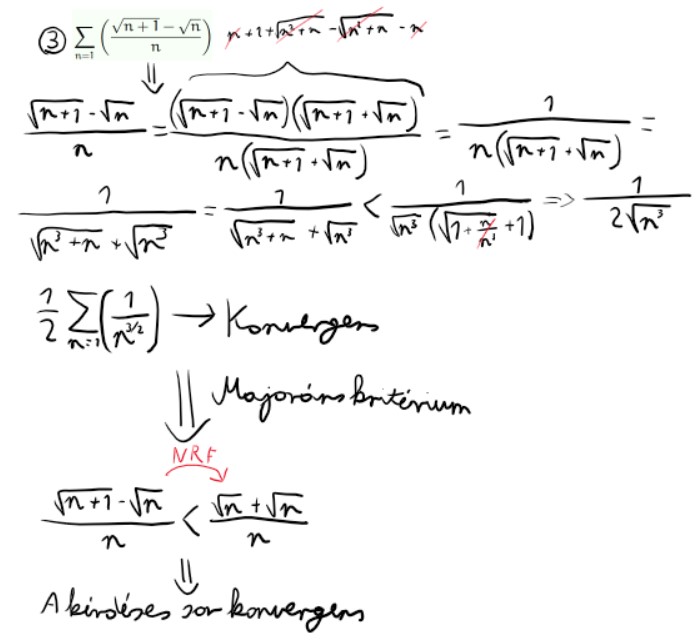 ③ \sum_{n=1} \left( \frac{\sqrt{n+1}-\sqrt{n}}{n} \right) n+1+\sqrt{n^2+n}-\sqrt{n^2+n}-n
⇓
\frac{\sqrt{n+1}-\sqrt{n}}{n} = \frac{(\sqrt{n+1}-\sqrt{n})(\sqrt{n+1}+\sqrt{n})}{n(\sqrt{n+1}+\sqrt{n})} = \frac{1}{n(\sqrt{n+1}+\sqrt{n})} =
\frac{1}{\sqrt{n^3+n}+\sqrt{n^3}} = \frac{1}{\sqrt{n^3+n}+\sqrt{n^3}} < \frac{1}{\sqrt{n^3}(\sqrt{1+\frac{n}{n^3}}+1)} => \frac{1}{2\sqrt{n^3}}
\frac{1}{2} \sum_{n=1} \left( \frac{1}{n^{3/2}} \right) → Konvergens
⇓ Majoráns kritérium
NRF
\frac{\sqrt{n+1}-\sqrt{n}}{n} < \frac{\sqrt{n}+\sqrt{n}}{n}
⇓
A kérdéses sor konvergens